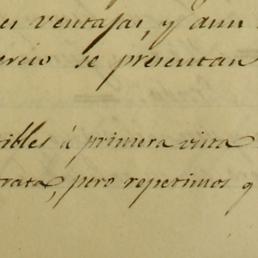 es ventajas, y aun
ercio se presentan
ibles á primera vista
rata, pero repetimos q